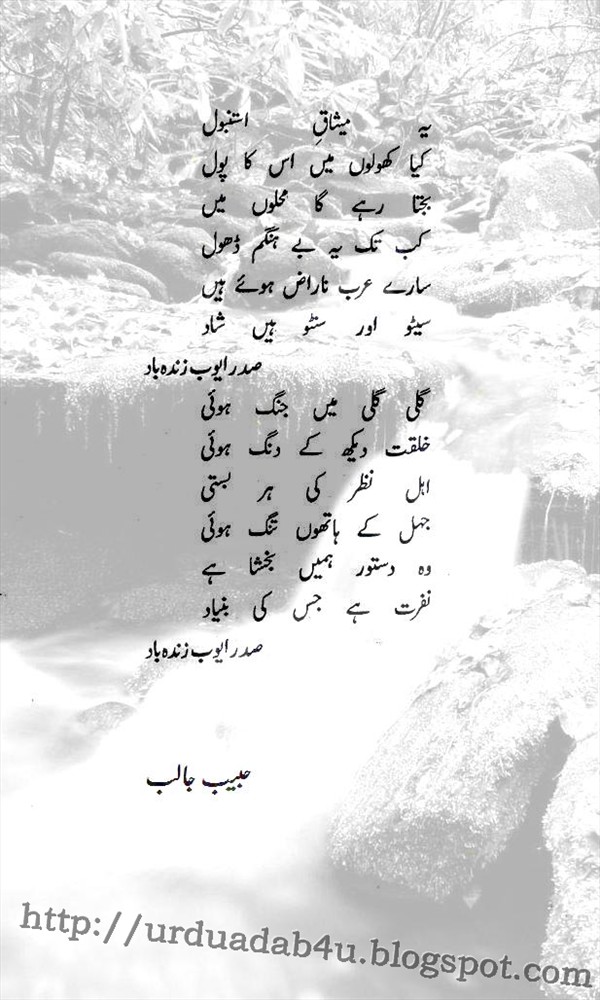 یہ میثاقِ استنبول
کیا کھولوں میں اس کا پول
بجتا رہے گا محلوں میں
کب تک یہ بے ہنگم ڈھول
سارے عرب ناراض ہوئے ہیں
سیٹو اور سنٹو ہیں شاد
صدر ایوب زندہ باد
گلی گلی میں جنگ ہوئی
خلقت دیکھ کے دنگ ہوئی
اہل نظر کی ہر بستی
جہل کے ہاتھوں تنگ ہوئی
وہ دستور ہمیں بخشا ہے
نفرت ہے جس کی بنیاد
صدر ایوب زندہ باد
حبیب جالب
http://urduadab4u.blogspot.com